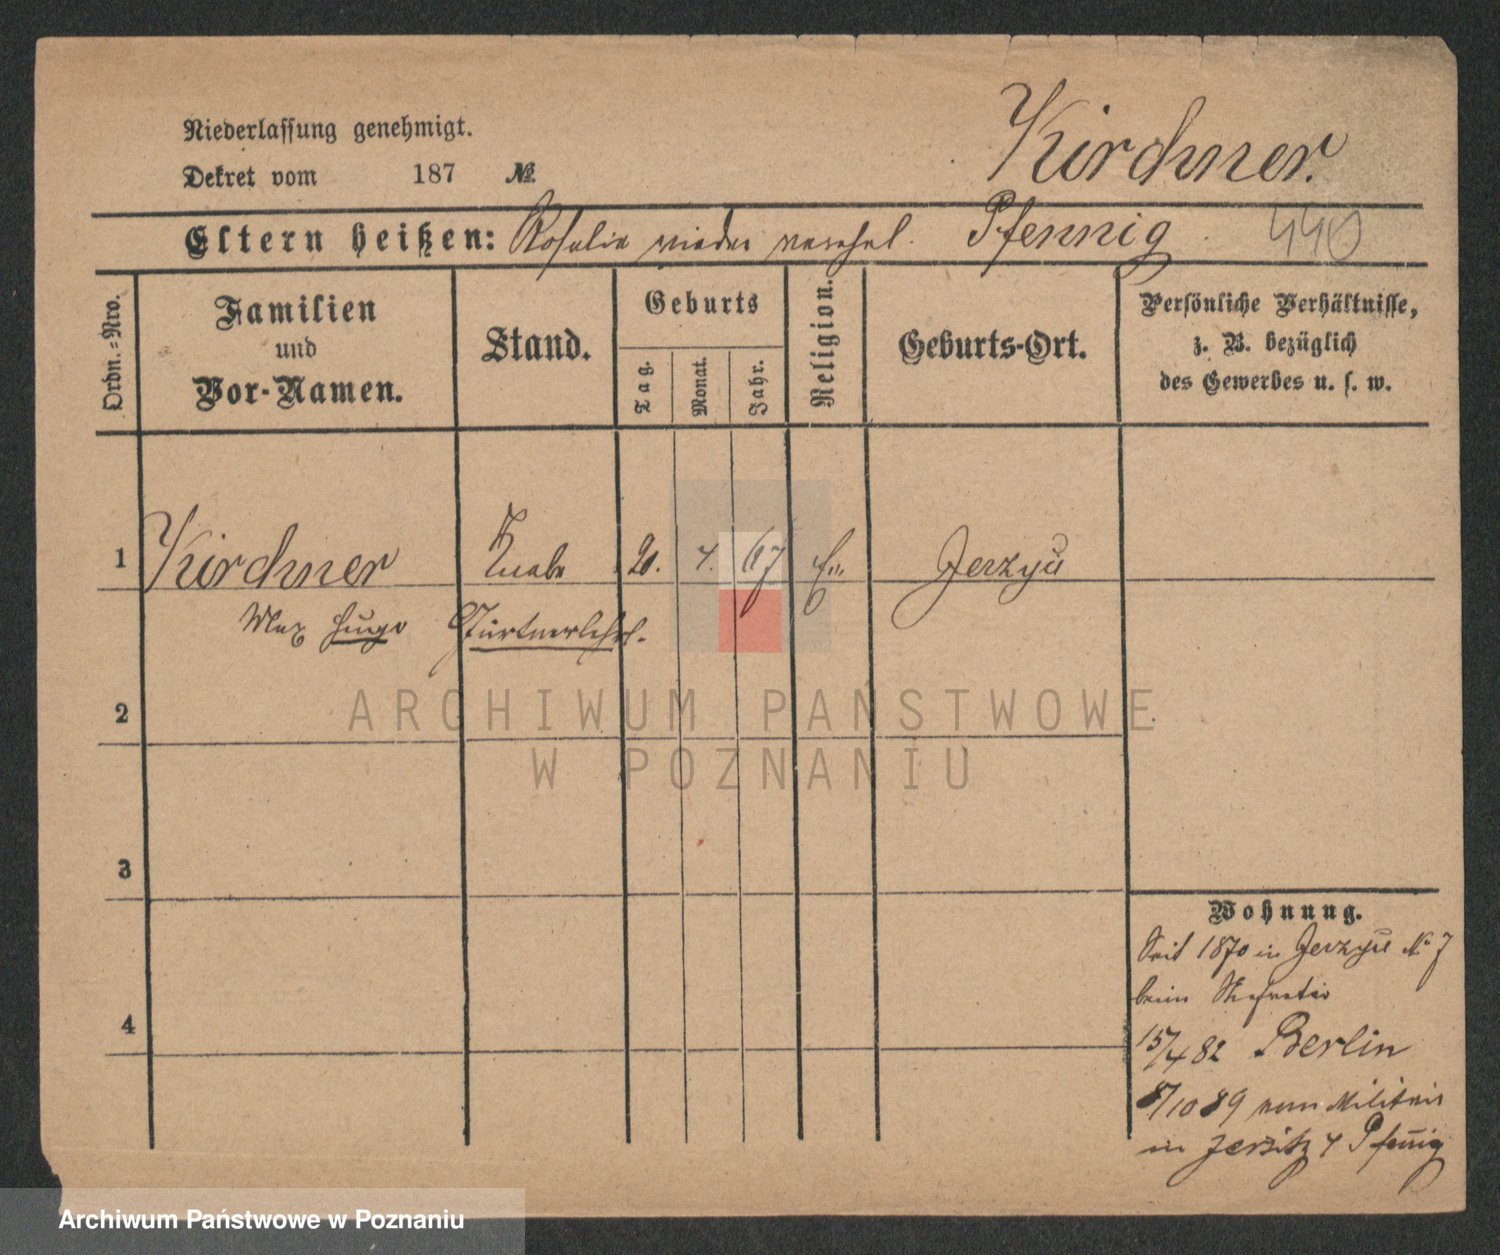 Niederlassung genehmigt.
Dekret vom 187 №
Kirchner.
Eltern heißen: Rosalie wieder verehel. Pfennig
440
Ordn.-Nro.
Familien und Vor-Namen.
Stand.
Geburts
Tag. Monat. Jahr.
Religion.
Geburts-Ort.
Persönliche Verhältnisse,
z. B. bezüglich
des Gewerbes u. s. w.
1 Kirchner Knabe 20. 4. 67 Ev. Jerzyce
Max Hugo Gärtnerlehrl.
2
3
4
Wohnung.
Seit 1870 in Jerzyce No 7
beim
15/4 82 Berlin
8/10 89 vom Militair
in Jersitz 4 Pfennig
ARCHIWUM PAŃSTWOWE
W POZNANIU
Archiwum Państwowe w Poznaniu